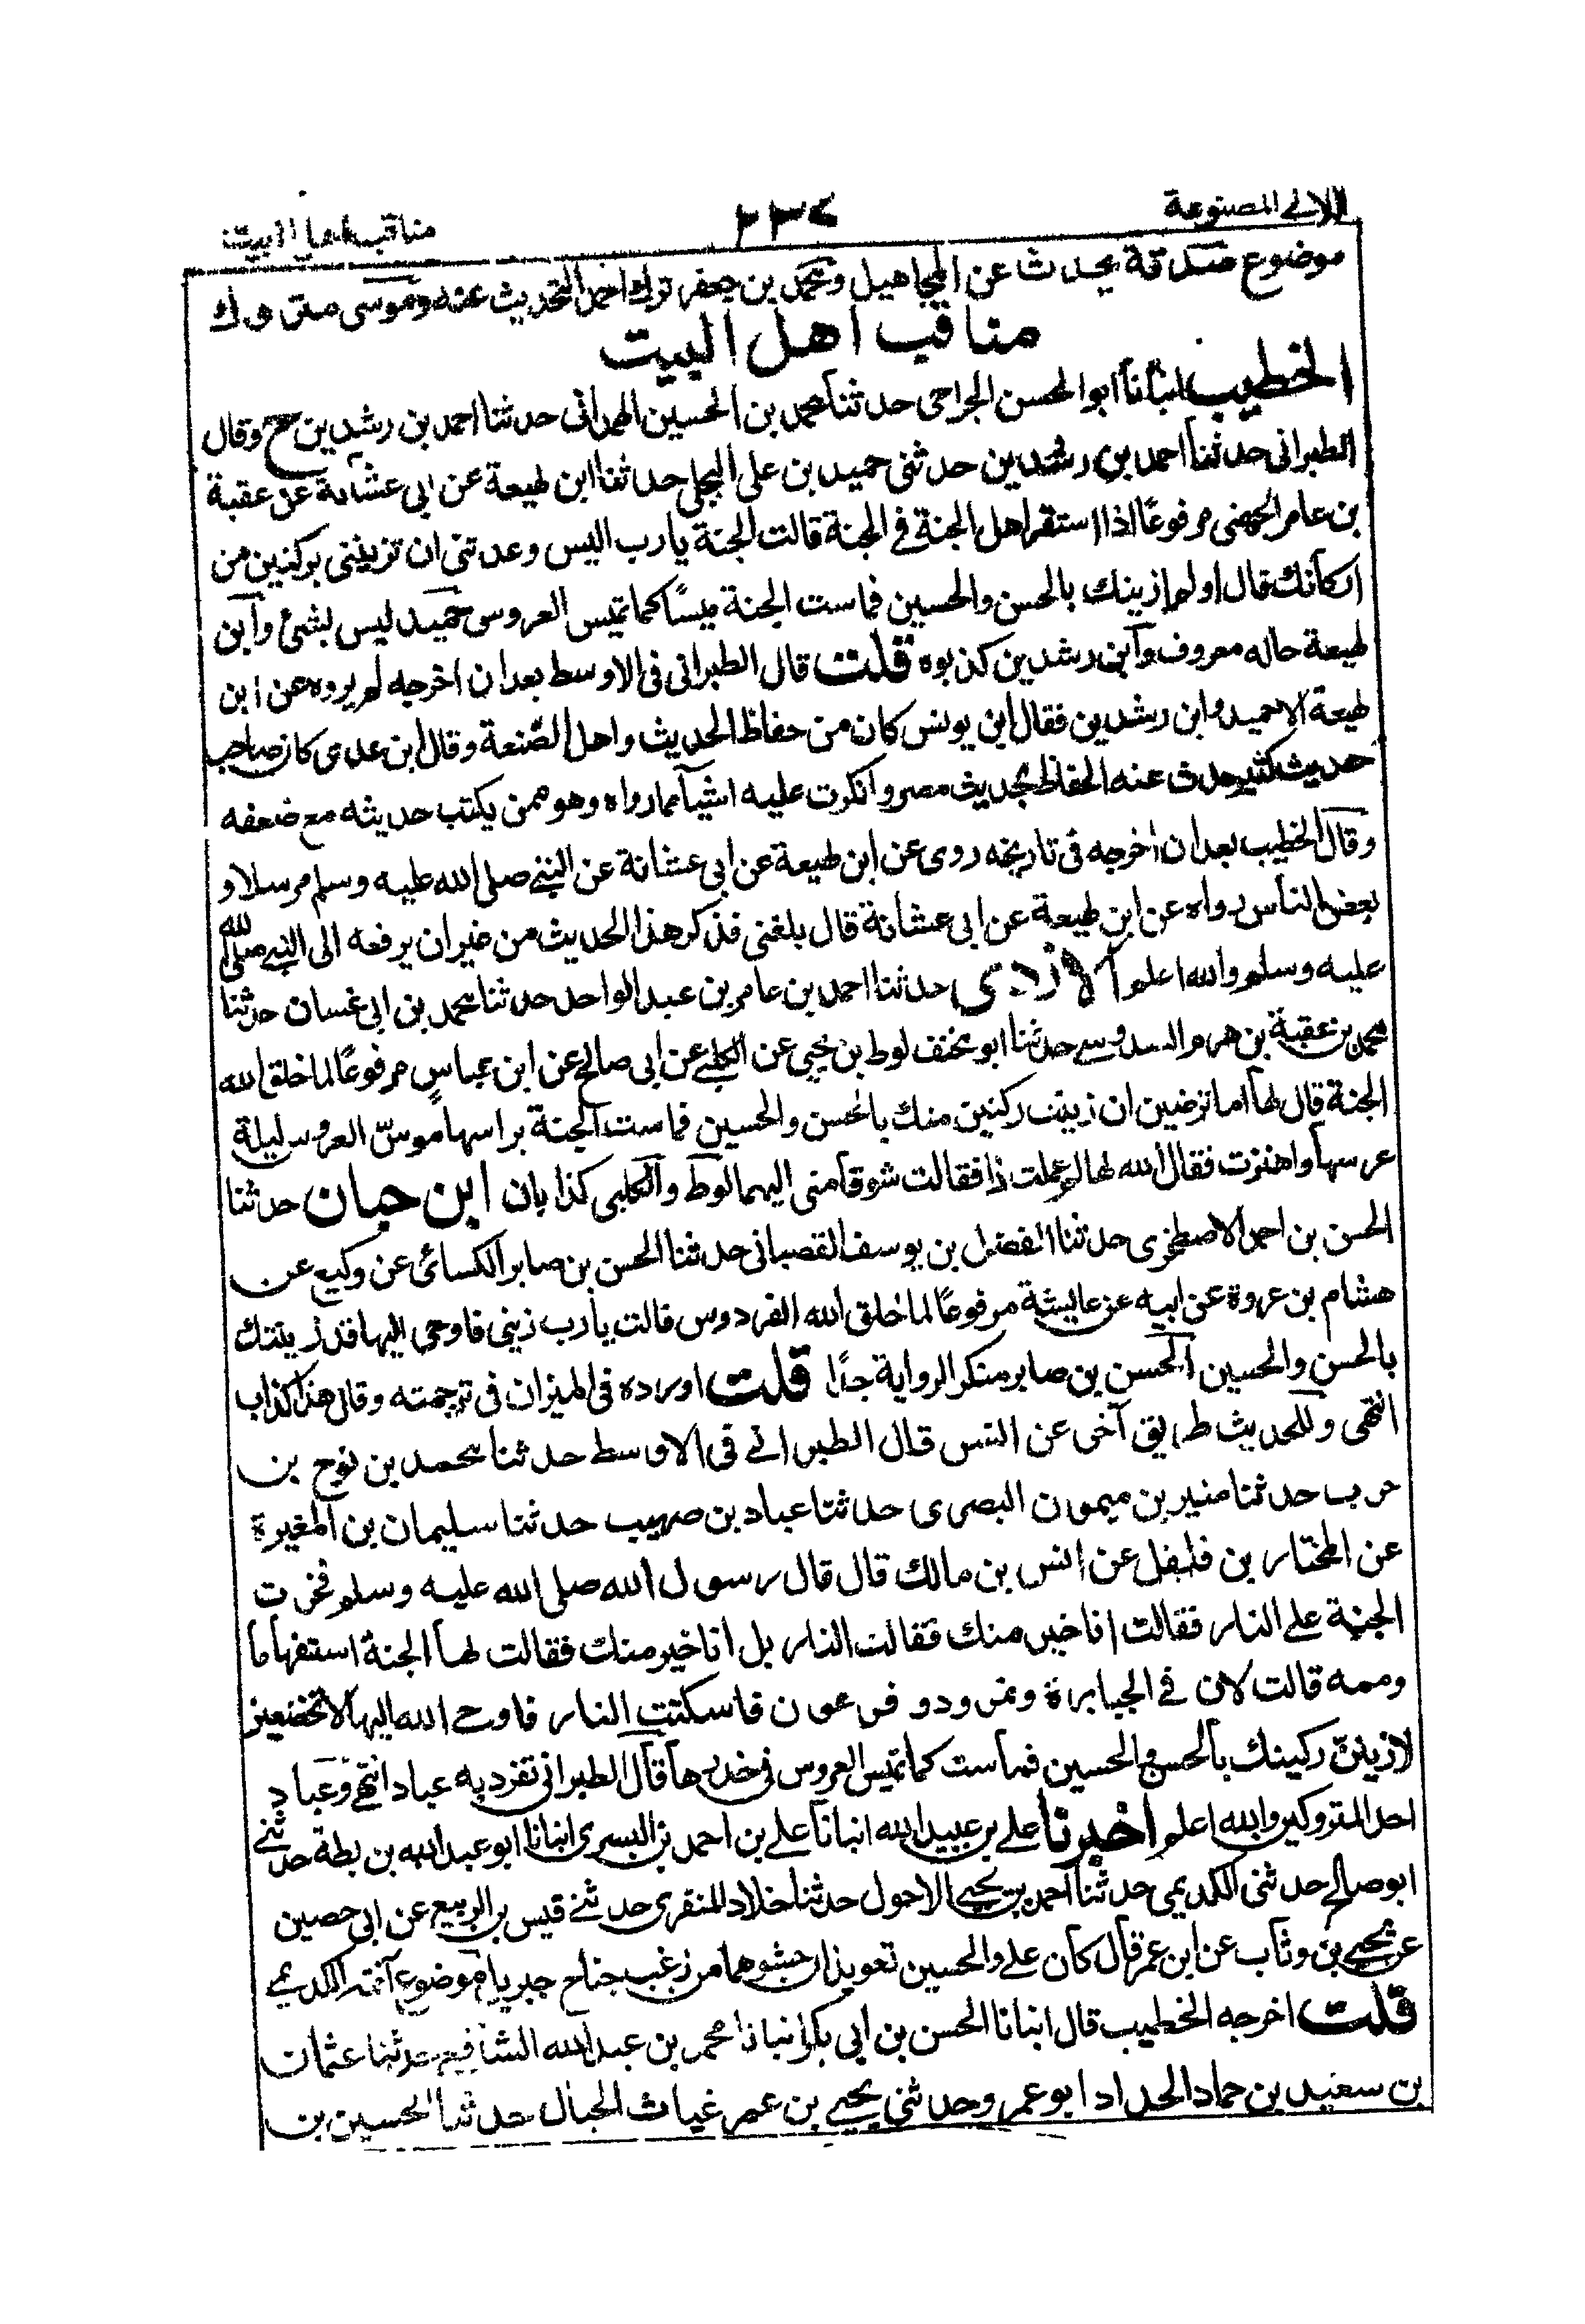 اللآلي المصنوعة
مناقب اهل البيت
موضوع صدقة يحدث عن المجاهيل ومحمد بن جعفر ترك احمد التحديث عنه وموسى متروك
مناقب اهل البيت
الخطيب انبانا ابو الحسن الجراحى حدثنا محمد بن الحسين الهمدانى حدثنا احمد بن رشدين ح وقال
الطبرانى حدثنا احمد بن رشدين حدثنى حميد بن على البجلى حدثنا ابن لهيعة عن ابى عشانة عن عقبة
بن عامر الجهنى مرفوعًا اذا استقر اهل الجنة فى الجنة قالت الجنة يا رب اليس وعدتنى ان تزيننى بركنين من
اركانك قال اولم ازينك بالحسن والحسين فماست الجنة ميسًا كما تميس العروس حميد ليس بشئ وابن
لهيعة حاله معروف وابن رشدين كذبوه قلت قال الطبرانى فى الاوسط بعد ان اخرجه لم يروه عن ابن
لهيعة الا حميد وابن رشدين فقال ابن يونس كان من حفاظ الحديث واهل الصنعة وقال ابن عدى كان صاحب
حديث كثير حدث عنه الحفاظ بحديث مصر وانكرت عليه اشياء مما رواه وهو ممن يكتب حديثه مع ضعفه
وقال الخطيب بعد ان اخرجه فى تاريخه روى عن ابن لهيعة عن ابى عشانة عن النبي صلى الله عليه وسلم مرسلا و
بعض الناس رواه عن ابن لهيعة عن ابى عشانة قال بلغنى فذكر هذا الحديث من غير ان يرفعه الى النبي صلى الله
عليه وسلم والله اعلم الازدى حدثنا احمد بن عامر بن عبد الواحد حدثنا محمد بن ابى غسان حدثنا
محمد بن عقبة بن هرم السدوسي حدثنا ابو مخنف لوط بن يحيى عن الكلبي عن ابى صالح عن ابن عباس مرفوعًا لما خلق الله
الجنة قال لها اما ترضين ان زينت ركنين منك بالحسن والحسين فماست الجنة براسها موسّ العروس ليلة
عرسها واهتزت فقال الله لها لم عملت ذا فقالت شوقا منى اليهما لوط والكلبى كذابان ابن حبان حدثنا
الحسن بن احمد الاصطخرى حدثنا الفضل بن يوسف القصبانى حدثنا الحسن بن صابر الكسائى عن وكيع عن
هشام بن عروة عن ابيه عن عايشة مرفوعًا لما خلق الله الفردوس قالت يا رب زينى فاوحى اليها قد زينتك
بالحسن والحسين الحسن بن صابر منكر الرواية جدًا قلت اورده فى الميزان فى ترجمته وقال هذا كذاب
انتهى وللحديث طريق آخر عن انس قال الطبرانے فى الاوسط حدثنا محمد بن نوح بن
حرب حدثنا منير بن ميمون البصرى حدثنا عباد بن صهيب حدثنا سليمان بن المغيرة
عن المختار بن فلفل عن انس بن مالك قال قال رسول الله صلى الله عليه وسلم فخرت
الجنة على النار فقالت انا خير منك فقالت النار بل انا خير منك فقالت لها الجنة استفهاما
وممه قالت لان في الجبابرة ونمرود و فرعون فاسكتت النار فاوحى الله اليها لا تخضعين
لازينن ركنيك بالحسن والحسين فماست كما تميس العروس فى خدرها قال الطبرانى تفرد به عباد انتهى وعباد
احد المتروكين والله اعلم اخبرنا علي بن عبيد الله انبانا علي بن احمد بن البسرى انبانا ابو عبد الله بن بطة حدثني
ابو صالح حدثنى الكديمى حدثنا احمد بن يحيى الاحول حدثنا خلاد المنقرى حدثني قيس بن الربيع عن ابى حصين
عن يحيى بن وثاب عن ابن عمر قال كان على والحسين تعويذان حشوهما من زغب جناح جبريل موضوع آفته الكديمى
قلت اخرجه الخطيب قال انبانا الحسن بن ابى بكر انبانا محمد بن عبد الله الشافعي حدثنا عثمان
بن سعيد بن حماد الحداد ابو عمر وحدثنى يحيى بن عمر غياث الجبال حدثنا الحسين بن